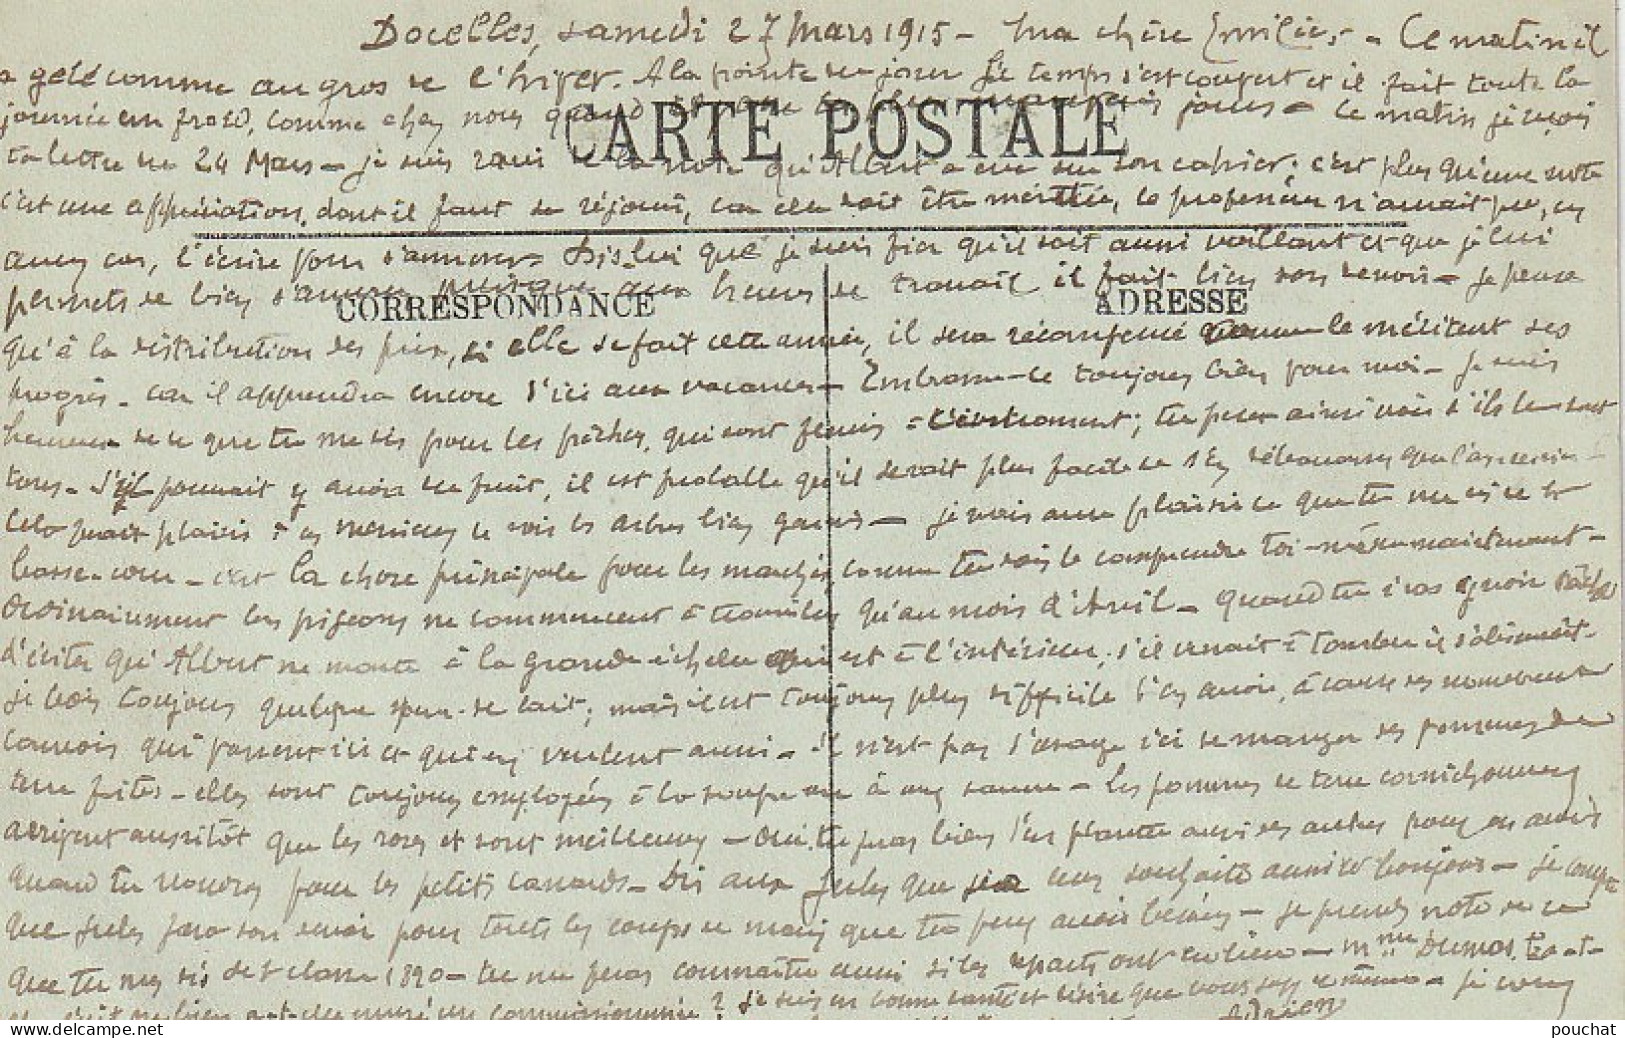 Docelles, samedi 27 Mars 1915 - Ma chère Emilie, - Ce matin il
a gelé comme au gros de l'hiver. A la pointe du jour le temps s'est couvert et il fait toute la
journée un froid, comme chez nous quand jours - Ce matin je reçois
CARTE POSTALE
ta lettre du 24 Mars - je suis ravi de la note qu'Albert a eue sur son cahier; c'est plus qu'une note
c'est une appréciation, dont il faut se réjouir, car elle doit être méritée, le professeur n'aurait pu, en
aucun cas, l'écrire pour s'amuser. Dis-lui que je suis fier qu'il soit aussi vaillant et que je lui
permets de bien s'amuser puisque aux heures de travail il fait bien son devoir - je pense
CORRESPONDANCE
ADRESSE
qu'à la distribution des prix, si elle se fait cette année, il sera récompensé comme le méritent ses
progrès - car il apprendra encore d'ici aux vacances - Embrasse-le toujours bien pour moi - Je suis
heureux de ce que tu me dis pour les pêchers, qui sont fleuris ; tu peux ainsi voir s'ils le sont
tous - S'il pouvait y avoir du fruit, il est probable qu'il serait plus facile de s'en débarrasser que l'an dernier -
Cela fait plaisir de voir les arbres bien garnis - je vois avec plaisir ce que tu me dis de la
basse-cour - c'est la chose principale pour les marchés comme tu dois le comprendre toi-même maintenant -
Ordinairement les pigeons ne commencent à travailler qu'au mois d'Avril - quand tu iras y voir tâche
d'éviter qu'Albert ne monte à la grande échelle qui est à l'intérieur, s'il venait à tomber il s'abîmerait -
je bois toujours quelque peu de lait; mais il est toujours plus difficile d'en avoir, à cause des nombreux
convois qui passent ici et qui en veulent aussi - Il n'est pas d'usage ici de manger des pommes de
terre frites - elles sont toujours employées à la soupe ou à une sauce - Les pommes de terre cornichonnes
arrivent aussitôt que les roses et sont meilleures - Oui, tu peux bien d'en planter aussi des autres pour en avoir
quand tu voudras pour les petits canards - Dis aux Jules que je leur souhaite aussi le bonjour - je compte
que Jules fera son devoir pour tous les coups de main que tu peux avoir besoin - Je prends note de ce
que tu me dis de la classe 1890 - tu me feras connaître aussi si les départs ont eu lieu - Mme Dumas
commissionnée ? Je suis en bonne santé et désire que vous soyez de même - je vous
Adrien
pouchat